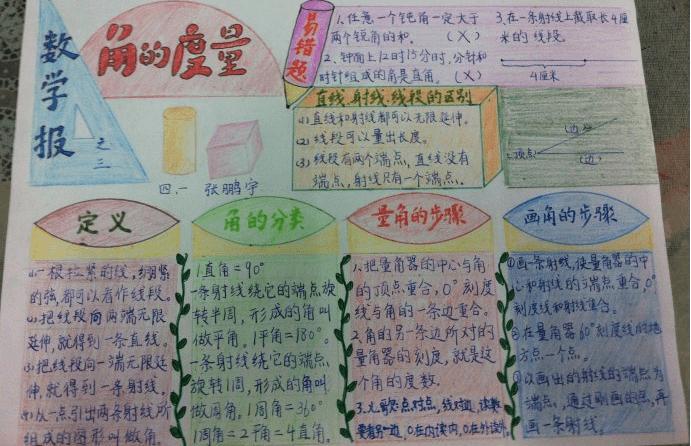 数学报
之三
角的度量
四.一 张鹏宇
易错题
1、任意一个钝角一定大于
两个锐角的和. (X)
2、钟面上12时15分时,分针和
时针组成的角是直角. (X)
3、在一条射线上截取长4厘
米的线段.
4厘米
直线、射线、线段的区别
(1)直线和射线都可以无限延伸.
(2)线段可以量出长度。
(3)线段有两个端点,直线没有
端点,射线只有一个端点.
(边)
顶点
(边)
定义
(1)一根拉紧的线,绷紧
的弦,都可以看作线段。
(2)把线段向两端无限
延伸,就得到一条直线。
(3)把线段向一端无限延
伸,就得到一条射线.
(4)从一点引出两条射线所
组成的图形叫做角。
角的分类
1.直角=90°
一条射线绕它的端点旋
转半周,形成的角叫
做平角。1平角=180°.
一条射线绕它的端点
旋转1周,形成的角叫
做周角,1周角=360°
1周角=2平角=4直角。
量角的步骤
1、把量角器的中心与角
的顶点重合,0°刻度
线与角的一条边重合。
2、角的另一条边所对的
量角器的刻度,就是这
个角的度数.
点对点,线对边,读数
要看另一边,0在内读内,0在外读外.
画角的步骤
①画一条射线,使量器的中
心和射线的端点重合,0°
刻度线和射线重合.
②在量角器60°刻度线的地
方点一个点。
③以画出的射线的端点为
端点,通过刚画的点,再
画一条射线.